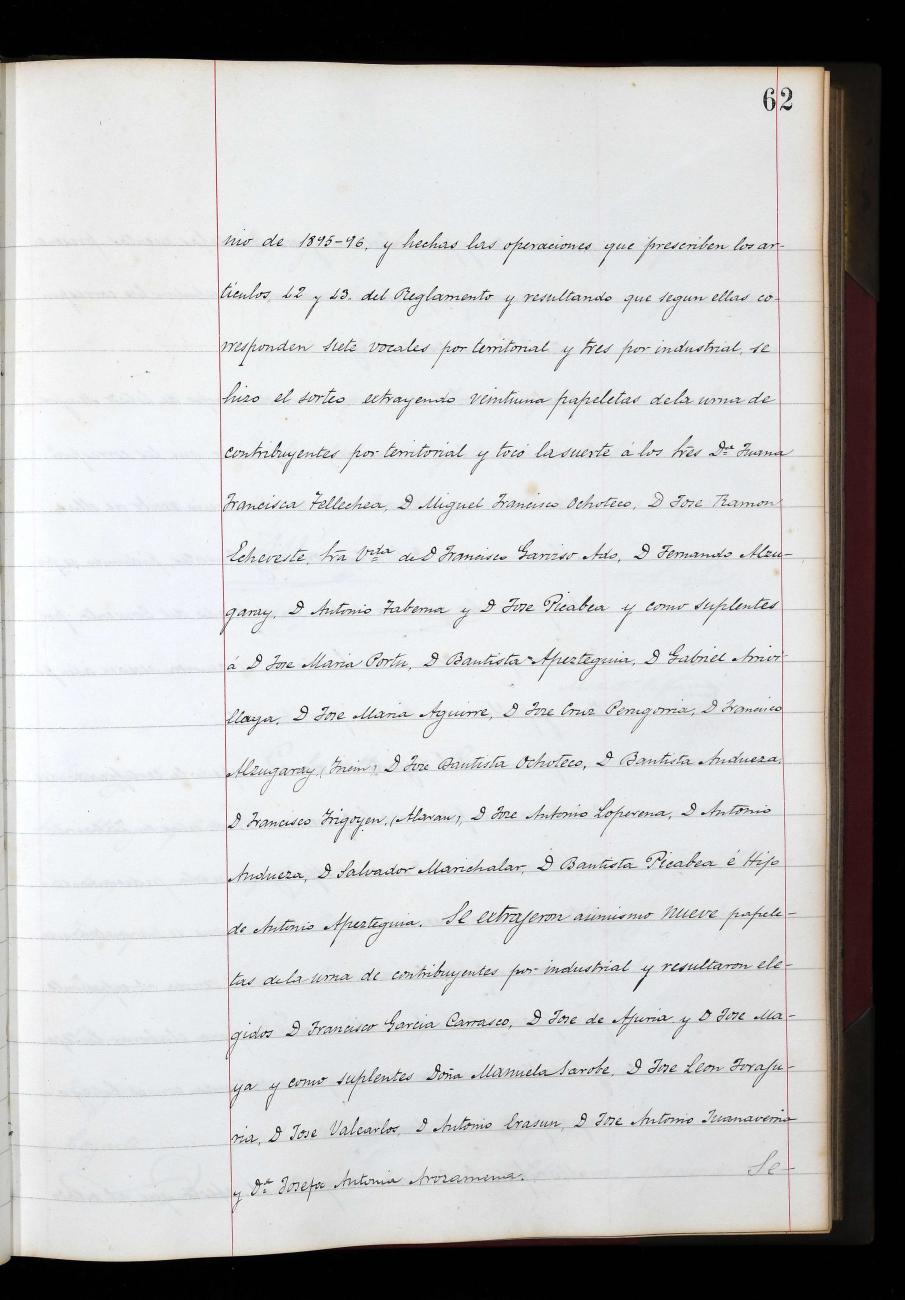 62
nio de 1895-96, y hechas las operaciones que prescriben los ar-
tículos 42 y 43. del Reglamento y resultando que segun ellas co-
rresponden siete vocales por territorial y tres por industrial, se
hizo el sorteo extrayendo veintiuna papeletas de la urna de
contribuyentes por territorial y tocó la suerte á los tres Dª Juana
Francisca Tellechea, D Miguel Francisco Ochoteco, D Jose Ramon
Echeveste, Sra Vda de D Francisco Garviso Ado, D Fernando Alzu-
garay, D Antonio Taberna y D Jose Picabea y como suplentes
á D Jose Maria Portu, D Bautista Apezteguia, D Gabriel Arrivi-
llaga, D Jose Maria Aguirre, D Jose Cruz Perugorria, D Francisco
Alzugaray, D Jose Bautista Ochoteco, D Bautista Andueza,
D Francisco Yrigoyen, (Alarau), D Jose Antonio Loperena, D Antonio
Andueza, D Salvador Marichalar, D Bautista Picabea é Hijo
de Antonio Apezteguia. Se extrajeron asimismo nueve papele-
tas de la urna de contribuyentes por industrial y resultaron ele-
gidos D Francisco Garcia Carrasco, D Jose de Ajuria y D Jose Ma-
ya y como suplentes Doña Manuela Sarobe, D Jose Leon Yoraju-
ria, D Jose Valcarlos, D Antonio Erasun, D Jose Antonio Juanaverria
y Dª Josefa Antonia Arozamena.
Se-